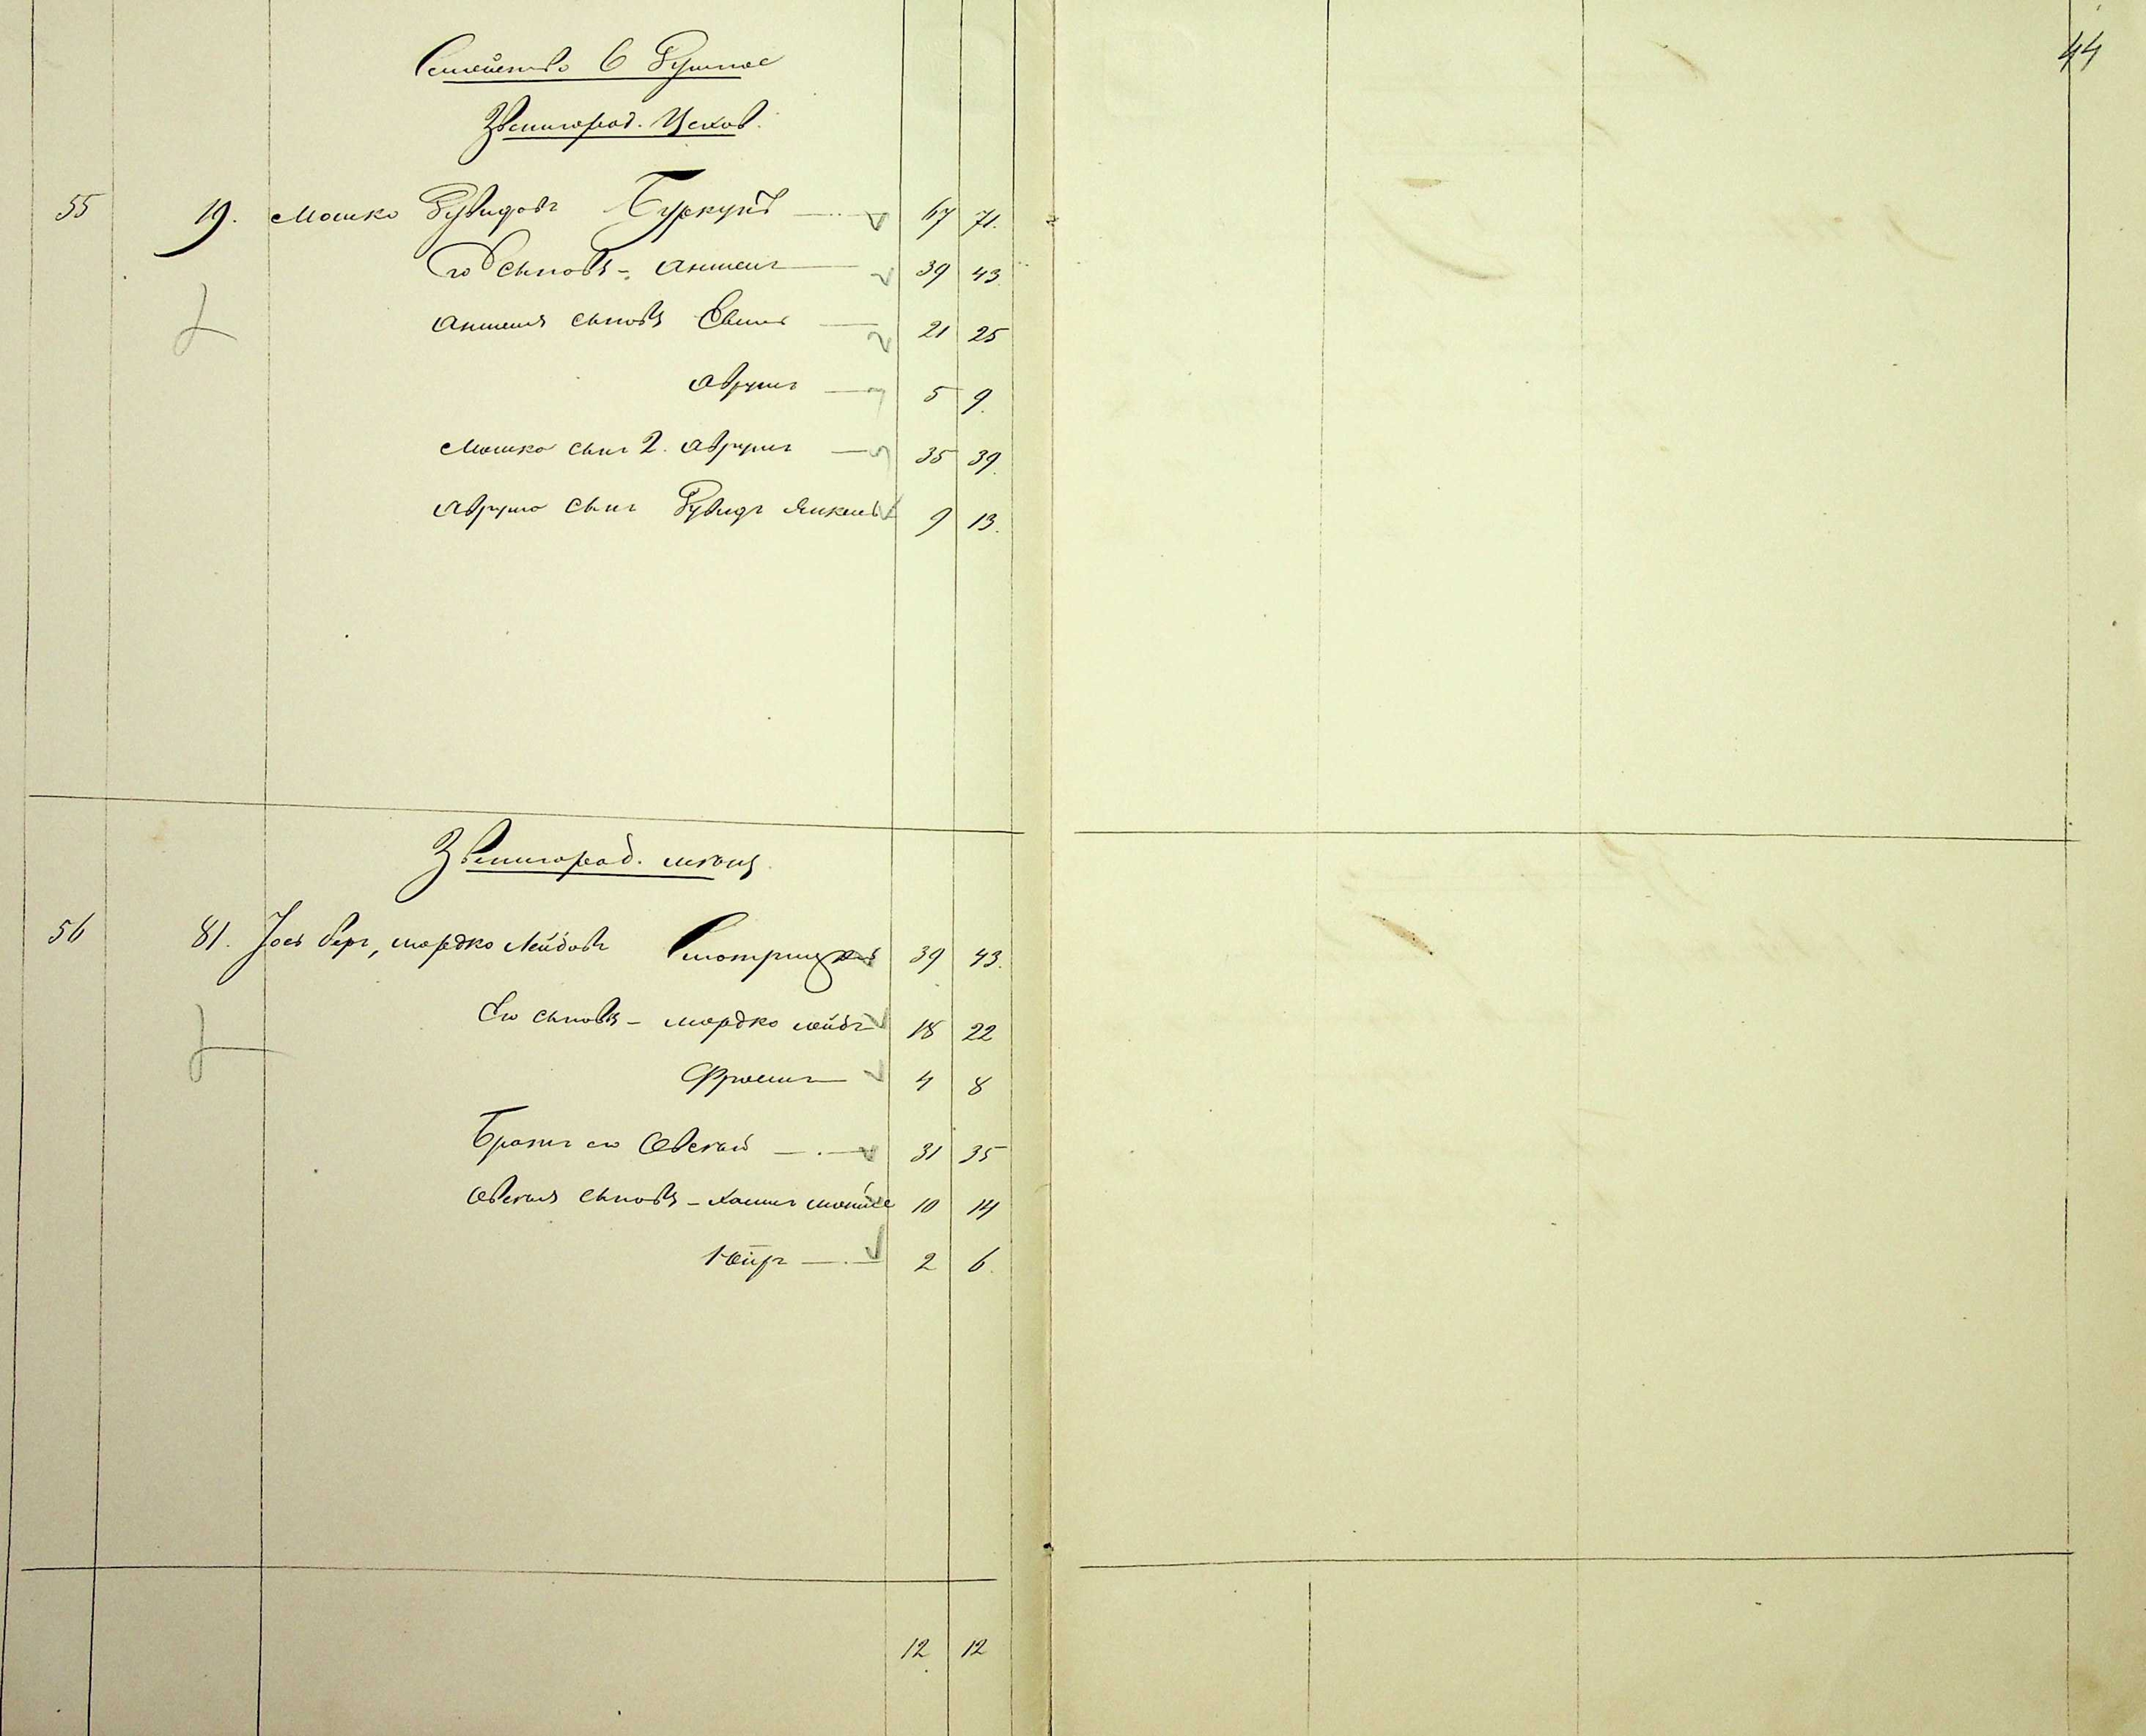 44
Семейство 6 Душное
Звенигород. Цехов.
55 19. Мошко Рувидовъ Буркунъ 67 71.
Его сыновья - Аншель 39 43
Аншеля сыновья 21 25
Аврумъ 5 9.
Мошко сынъ 2. Аврумъ 35 39.
Аврумо сынъ Рувидъ Янкель 9 13.
Звенигород. мѣщ.
56 81. Іось Беръ, Мордко Лейбовъ Смотрицкій 39 43.
Его сыновья - Мордко Лейбъ 18 22
Фроимъ 4 8
Братъ его Овсѣй 31 35
Овсѣя сыновья - Хаимъ 10 14
2 6.
12. 12